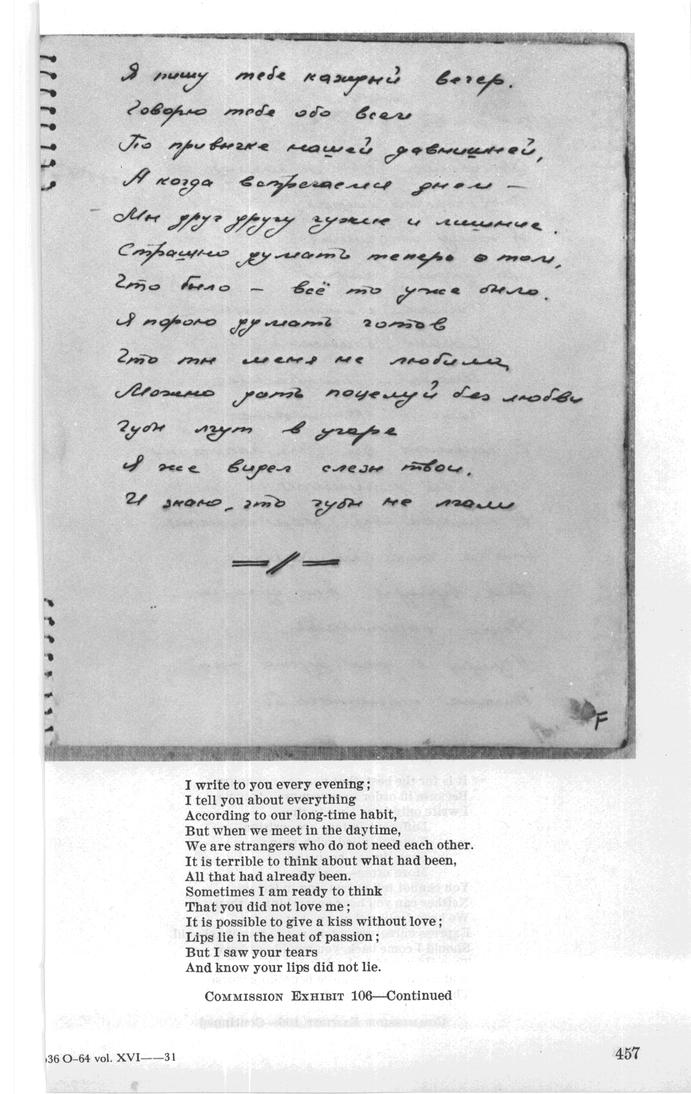 Я пишу тебе каждый вечер.
Говорю тебе обо всем
По привычке нашей давнишней,
А когда встречаемся днем –
Мы друг другу чужие и лишние.
Страшно думать теперь о том,
Что было – всё то уже было.
Я порою думать готов
Что ты меня не любила,
Можно дать поцелуй без любви
Губы лгут в угаре
Я же видел слезы твои.
И знаю, что губы не лгали
=/=
F
I write to you every evening;
I tell you about everything
According to our long-time habit,
But when we meet in the daytime,
We are strangers who do not need each other.
It is terrible to think about what had been,
All that had already been.
Sometimes I am ready to think
That you did not love me;
It is possible to give a kiss without love;
Lips lie in the heat of passion;
But I saw your tears
And know your lips did not lie.
COMMISSION EXHIBIT 106—Continued
36 O–64 vol. XVI——31
457